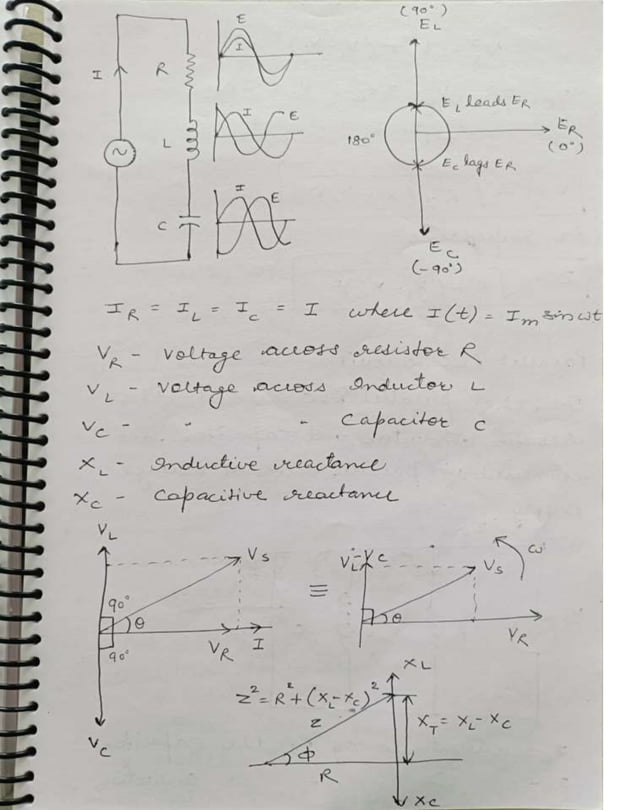 (90°)
E_L
E
I
I
R
E_L leads E_R
I
E
E_R
L
180°
(0°)
E_C lags E_R
I
E
C
E_C
(-90°)
I_R = I_L = I_C = I where I(t) = I_m sin ωt
V_R - Voltage across resistor R
V_L - Voltage across Inductor L
V_C - " " - Capacitor C
X_L - Inductive reactance
X_C - Capacitive reactance
V_L
V_S
≡
V_L - V_C
V_S
ω
90°
θ
θ
90°
V_R
I
V_R
V_C
X_L
Z² = R² + (X_L - X_C)²
Z
X_T = X_L - X_C
ϕ
R
X_C